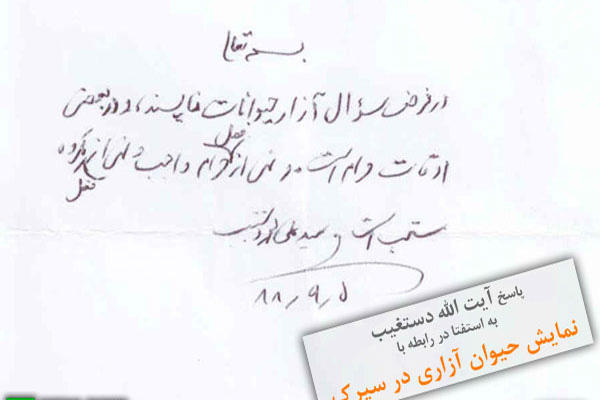 بسمه تعالی
در فرض سؤال آزار حیوانات ناپسند، و در بعضی
اوقات حرام است. و نهی از فعل حرام واجب و نهی از فعل مکروه
مستحب است سید علی محمد دستغیب
۸۸٫۹٫۵
پاسخ آیت الله دستغیب
به استفتا در رابطه با
نمایش حیوان آزاری در سیرک